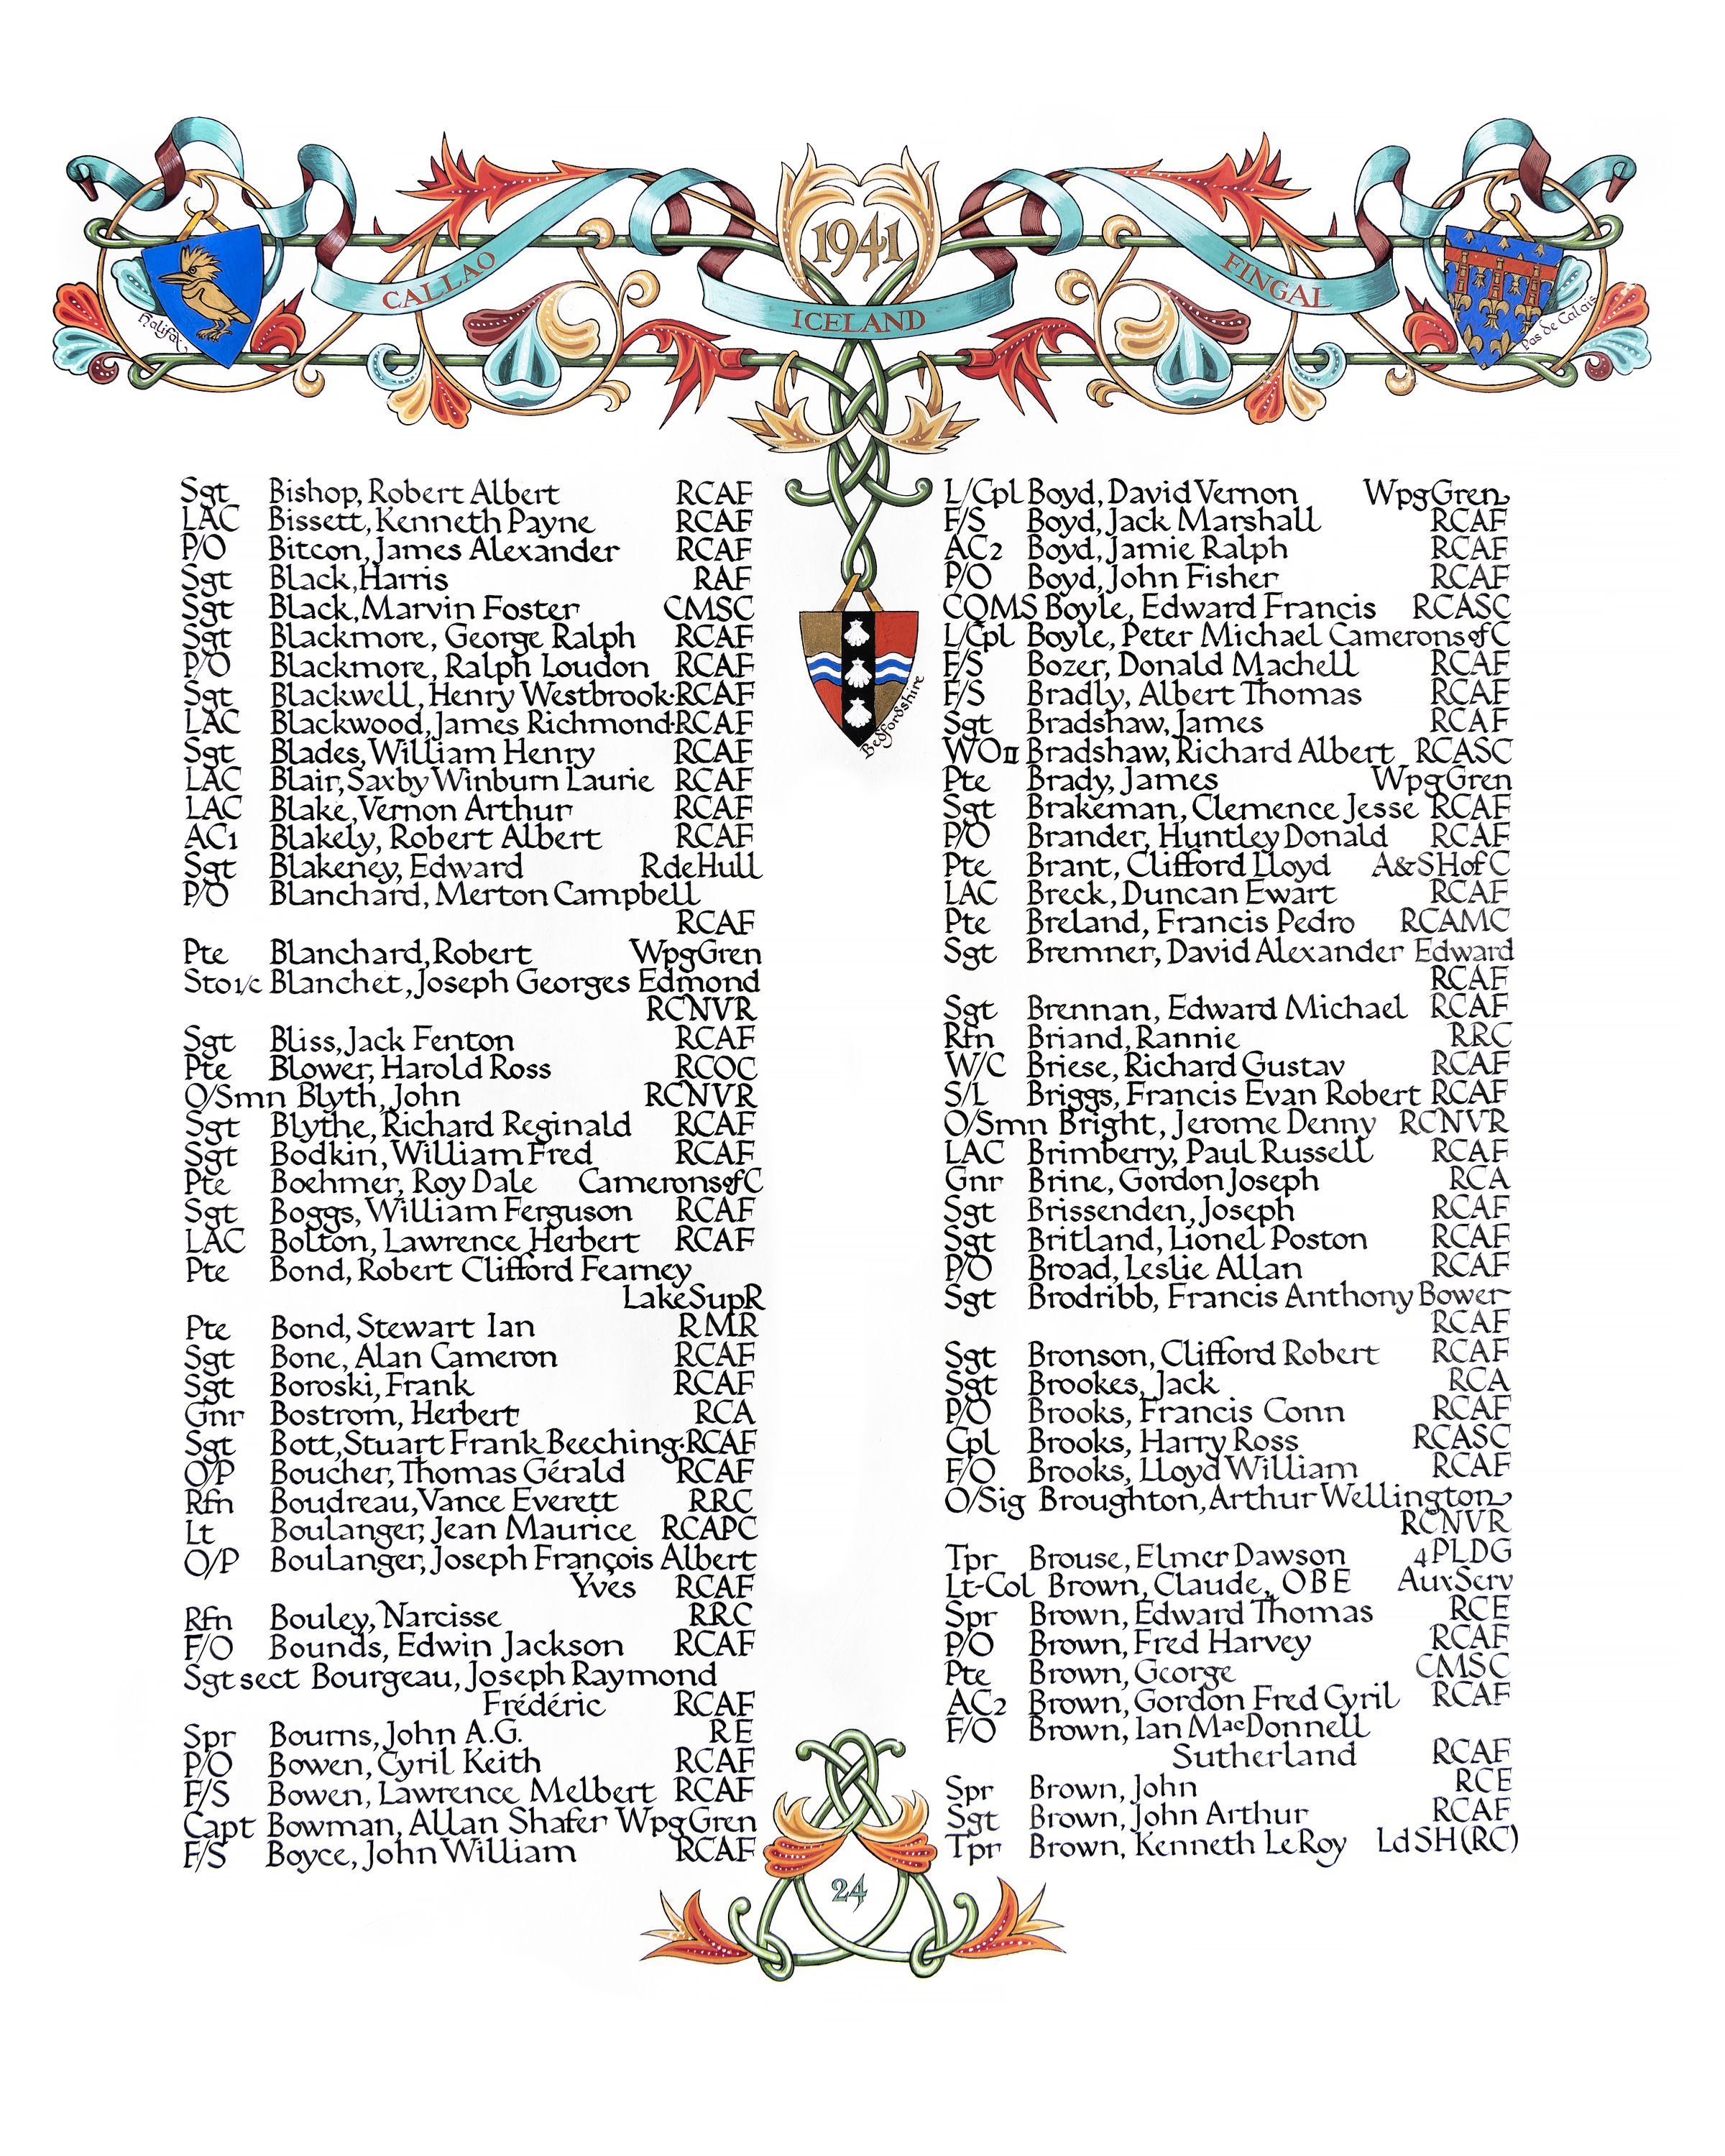 1941
CALLAO
ICELAND
FINGAL
Halifax
Pas de Calais
Bedfordshire
Sgt Bishop, Robert Albert RCAF
LAC Bissett, Kenneth Payne RCAF
P/O Bitcon, James Alexander RCAF
Sgt Black, Harris RAF
Sgt Black, Marvin Foster CMSC
Sgt Blackmore, George Ralph RCAF
P/O Blackmore, Ralph Loudon RCAF
Sgt Blackwell, Henry Westbrook·RCAF
LAC Blackwood, James Richmond·RCAF
Sgt Blades, William Henry RCAF
LAC Blair, Saxby Winburn Laurie RCAF
LAC Blake, Vernon Arthur RCAF
AC1 Blakely, Robert Albert RCAF
Sgt Blakeney, Edward RdeHull
P/O Blanchard, Merton Campbell
RCAF
Pte Blanchard, Robert WpgGren
Sto1/c Blanchet, Joseph Georges Edmond
RCNVR
Sgt Bliss, Jack Fenton RCAF
Pte Blower, Harold Ross RCOC
O/Smn Blyth, John RCNVR
Sgt Blythe, Richard Reginald RCAF
Sgt Bodkin, William Fred RCAF
Pte Boehmer, Roy Dale CameronsofC
Sgt Boggs, William Ferguson RCAF
LAC Bolton, Lawrence Herbert RCAF
Pte Bond, Robert Clifford Fearney
LakeSupR
Pte Bond, Stewart Ian RMR
Sgt Bone, Alan Cameron RCAF
Sgt Boroski, Frank RCAF
Gnr Bostrom, Herbert RCA
Sgt Bott, Stuart Frank Beeching·RCAF
O/P Boucher, Thomas Gérald RCAF
Rfn Boudreau, Vance Everett RRC
Lt Boulanger, Jean Maurice RCAPC
O/P Boulanger, Joseph François Albert
Yves RCAF
Rfn Bouley, Narcisse RRC
F/O Bounds, Edwin Jackson RCAF
Sgt sect Bourgeau, Joseph Raymond
Frédéric RCAF
Spr Bourns, John A.G. RE
P/O Bowen, Cyril Keith RCAF
F/S Bowen, Lawrence Melbert RCAF
Capt Bowman, Allan Shafer WpgGren
F/S Boyce, John William RCAF
L/Cpl Boyd, David Vernon WpgGren
F/S Boyd, Jack Marshall RCAF
AC2 Boyd, Jamie Ralph RCAF
P/O Boyd, John Fisher RCAF
CQMS Boyle, Edward Francis RCASC
L/Cpl Boyle, Peter Michael CameronsofC
F/S Bozer, Donald Machell RCAF
F/S Bradly, Albert Thomas RCAF
Sgt Bradshaw, James RCAF
WOII Bradshaw, Richard Albert RCASC
Pte Brady, James WpgGren
Sgt Brakeman, Clemence Jesse RCAF
P/O Brander, Huntley Donald RCAF
Pte Brant, Clifford Lloyd A&SHofC
LAC Breck, Duncan Ewart RCAF
Pte Breland, Francis Pedro RCAMC
Sgt Bremner, David Alexander Edward
RCAF
Sgt Brennan, Edward Michael RCAF
Rfn Briand, Rannie RRC
W/C Briese, Richard Gustav RCAF
S/L Briggs, Francis Evan Robert RCAF
O/Smn Bright, Jerome Denny RCNVR
LAC Brimberry, Paul Russell RCAF
Gnr Brine, Gordon Joseph RCA
Sgt Brissenden, Joseph RCAF
Sgt Britland, Lionel Poston RCAF
P/O Broad, Leslie Allan RCAF
Sgt Brodribb, Francis Anthony Bower
RCAF
Sgt Bronson, Clifford Robert RCAF
Sgt Brookes, Jack RCA
P/O Brooks, Francis Conn RCAF
Cpl Brooks, Harry Ross RCASC
F/O Brooks, Lloyd William RCAF
O/Sig Broughton, Arthur Wellington
RCNVR
Tpr Brouse, Elmer Dawson 4PLDG
Lt-Col Brown, Claude, OBE AuxServ
Spr Brown, Edward Thomas RCE
P/O Brown, Fred Harvey RCAF
Pte Brown, George CMSC
AC2 Brown, Gordon Fred Cyril RCAF
F/O Brown, Ian MacDonnell
Sutherland RCAF
Spr Brown, John RCE
Sgt Brown, John Arthur RCAF
Tpr Brown, Kenneth LeRoy LdSH(RC)
24